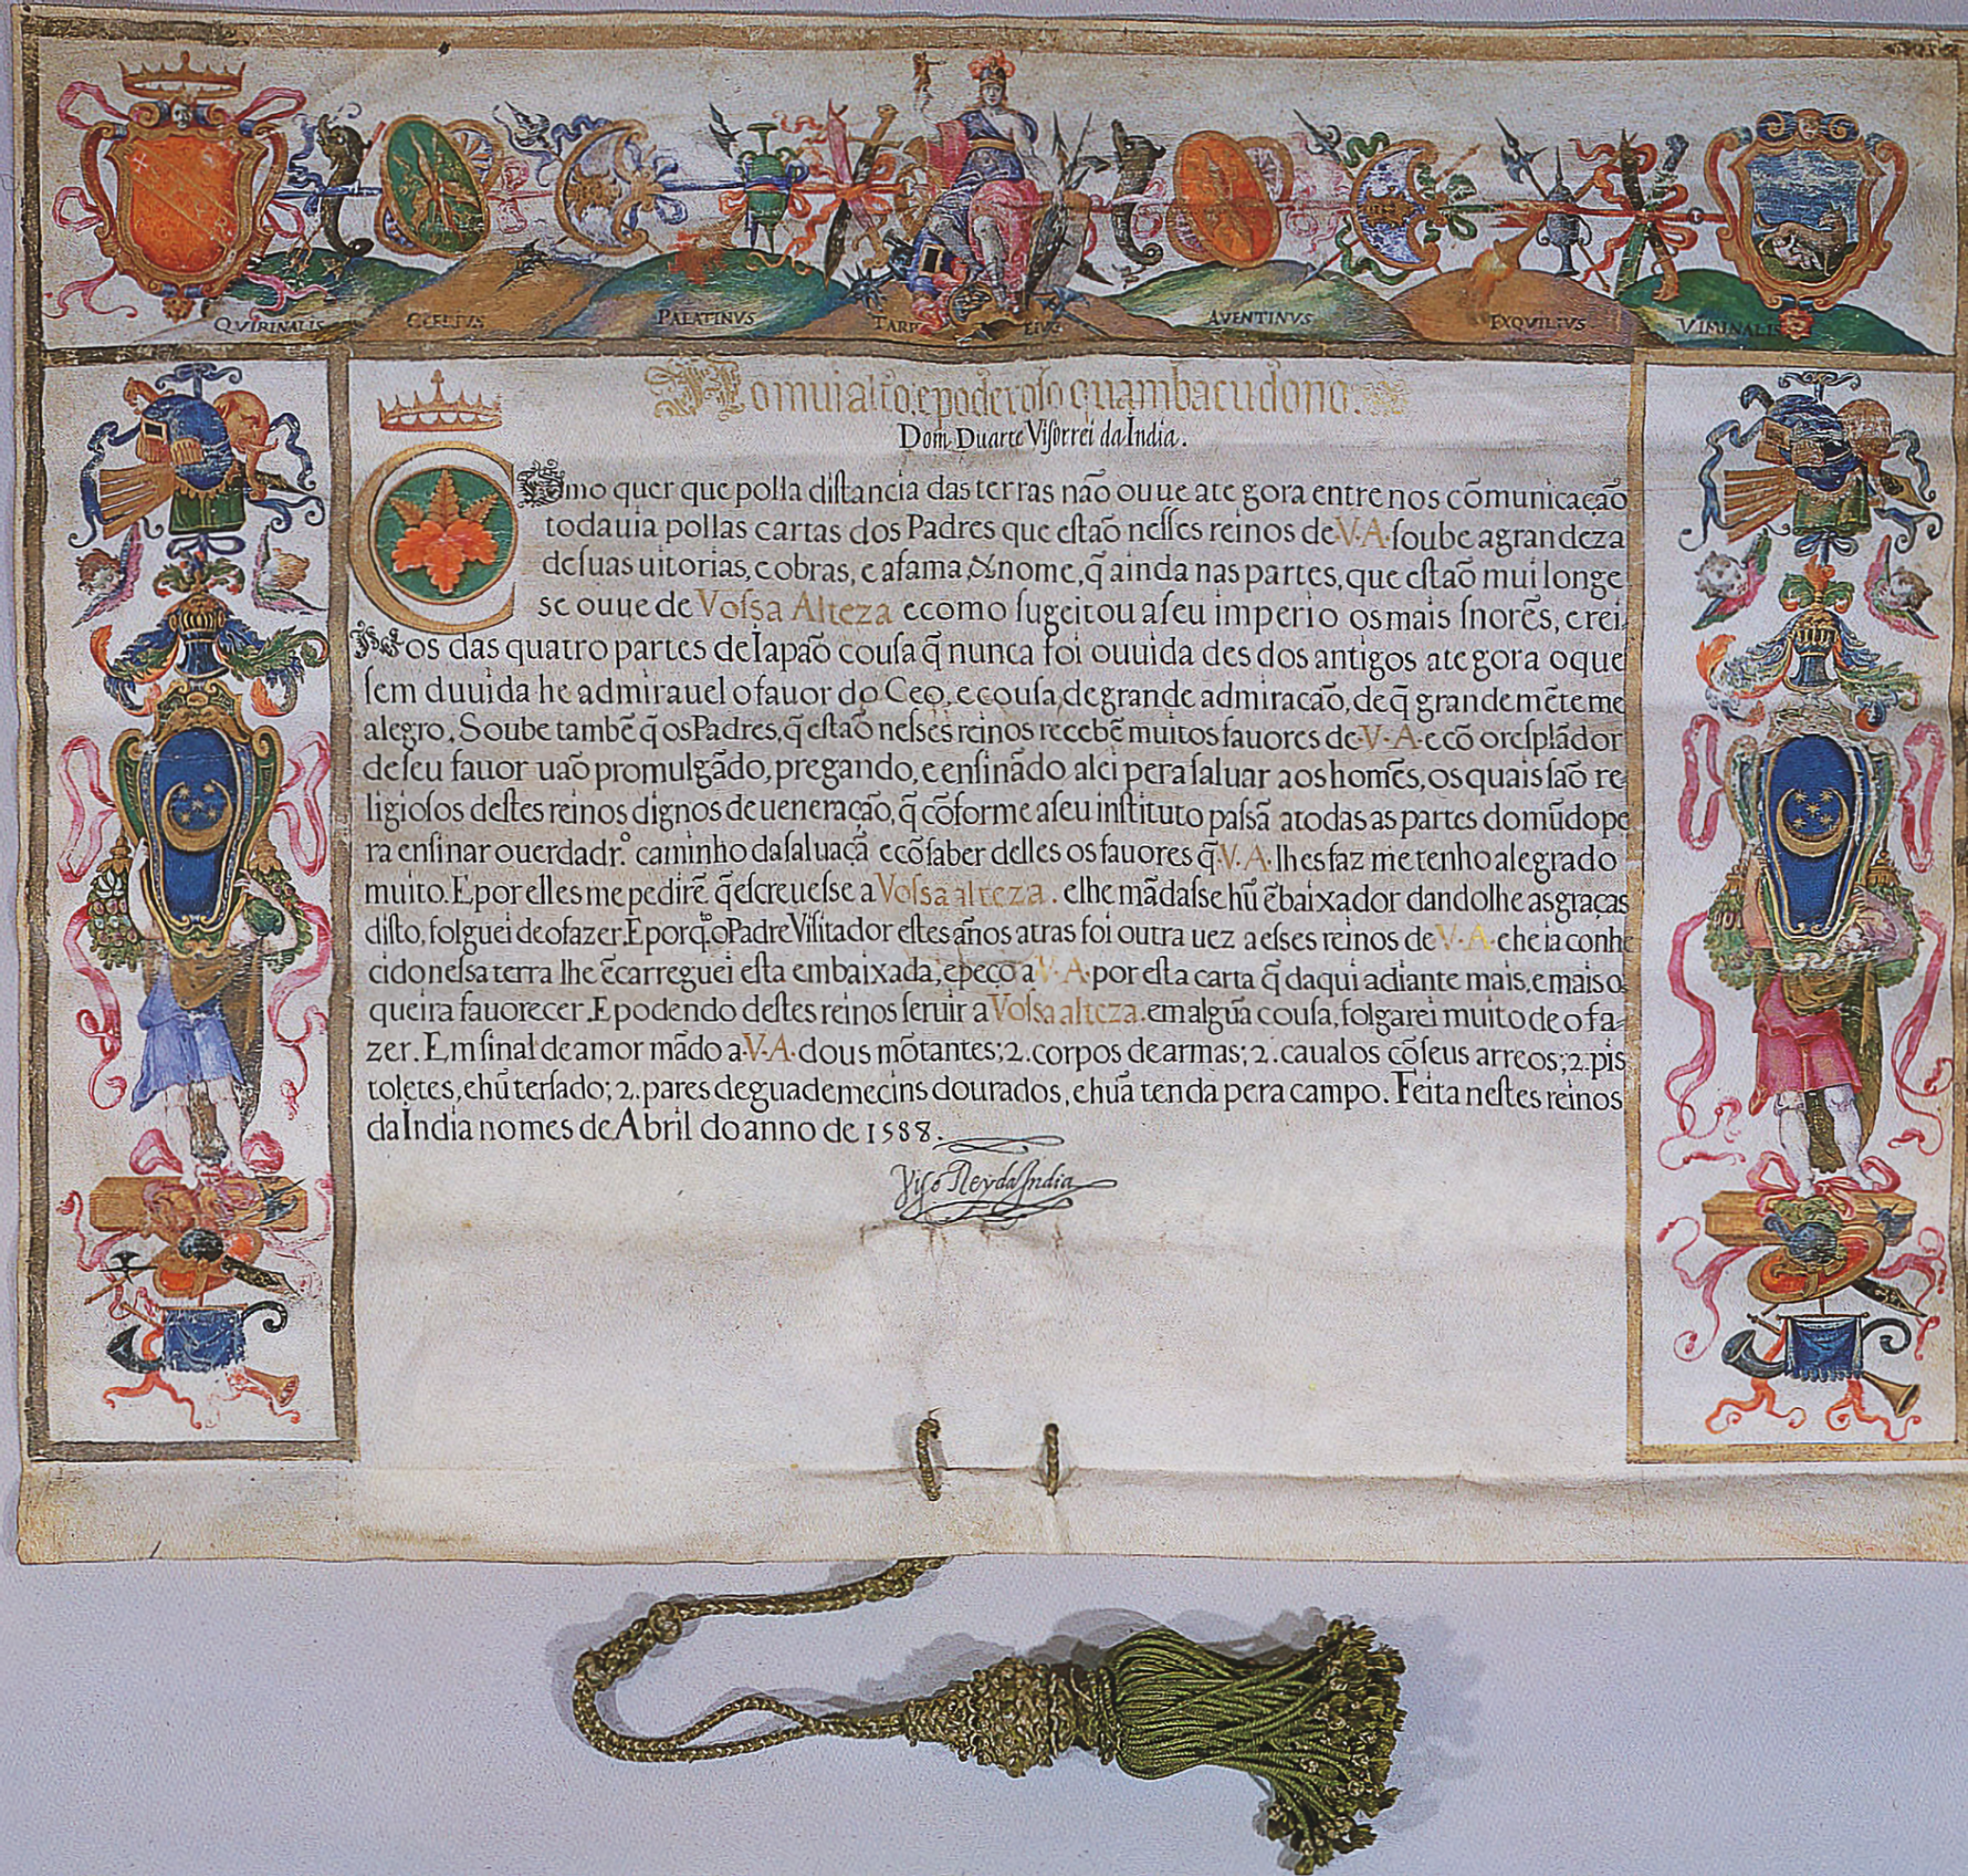 QVIRINALIS CELIVS PALATINVS TARP EIVS AVENTINVS EXQVILIVS VIMINALIS
Ao mui alto, e poderoso quambacudono.
Dom Duarte Viſorrei da India.
Como quer que polla diſtancia das terras não ouue ate gora entre nos cõmunicação
todauia pollas cartas dos Padres que eſtaõ neſſes reinos de·V·A·ſoube a grandeza
de ſuas uitorias, e obras, e a fama, & nome, q̃ ainda nas partes, que eſtaõ mui longe
se ouue de Voſsa Alteza e como ſugeitou a ſeu imperio os mais ſnorẽs, e rei
nos das quatro partes de Iapaõ couſa q̃ nunca foi ouuida des dos antigos ate gora o que
ſem duuida he admirauel o fauor do Ceo, e couſa de grande admiracaõ, de q̃ grandemẽte me
alegro. Soube tambẽ q̃ os Padres, q̃ eſtaõ neſses reinos recebẽ muitos fauores de·V·A·e cõ o reſplãdor
de ſeu fauor uaõ promulgãdo, pregando, e enſinãdo a lei pera ſaluar aos homẽs, os quais ſaõ re
ligioſos deſtes reinos dignos de ueneração, q̃ cõforme a ſeu inſtituto paſsã a todas as partes do mũdo pe
ra enſinar o uerdadr.º caminho da ſaluaçã e cõ ſaber delles os fauores q̃·V·A·lhes faz me tenho alegrado
muito. E por elles me pedirẽ q̃ eſcreueſse a Voſsa alteza. e lhe mãdaſse hũ ẽbaixador dandolhe as graças
diſto, folguei de o fazer. E porq.to o Padre Viſitador eſtes años atras foi outra uez a eſses reinos de·V·A·e he ia conhe
cido neſsa terra lhe ẽcarreguei eſta embaixada, e peço a·V·A·por eſta carta q̃ daqui a diante mais, e mais o
queira fauorecer. E podendo deſtes reinos ſeruir a Voſsa alteza. em algũa couſa, folgarei muito de o fa-
zer. Em ſinal de amor mãdo a·V·A·dous mõtantes; 2. corpos de armas; 2. caualos cõ ſeus arreos; 2. pis
toletes, e hũ terſado; 2. pares de guademecins dourados, e hũa tenda pera campo. Feita neſtes reinos
da India no mes de Abril do anno de 1588.
Viſo Rey da India